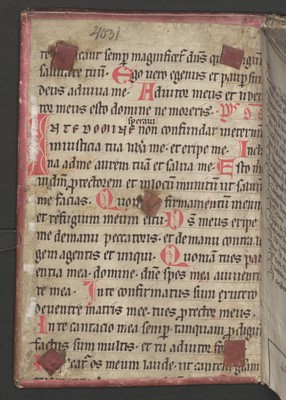 4031
dicant semp magnificet dns qui
salutare tuū. Ego vero egenus et paup sū
deus adiuva me. Adiutor meus et liber
tor meus esto domine ne moreris. Ps
speravi
IN TE DOMINE non confundar in eternū
in iusticia tua me et eripe me. Incli
na ad me aurem tuam et salva me. Esto m
in protectorem et in locū munitū ut salvū
me facias. Quoniā firmamentū meum
et refugium meum es tu. Ds meus eripe
me de manu peccatoris. et de manu contra le
gem agentis et iniqui. Quoniā tu es paci
entia mea domine. dne spes mea a iuventu
te mea. In te confirmatus sum ex utero
de ventre matris mee tu es protector meus.
In te cantacio mea semp. tanquam pdigiū
factus sum multis. et tu adiutor
os meum laude. ut cantem gloriam